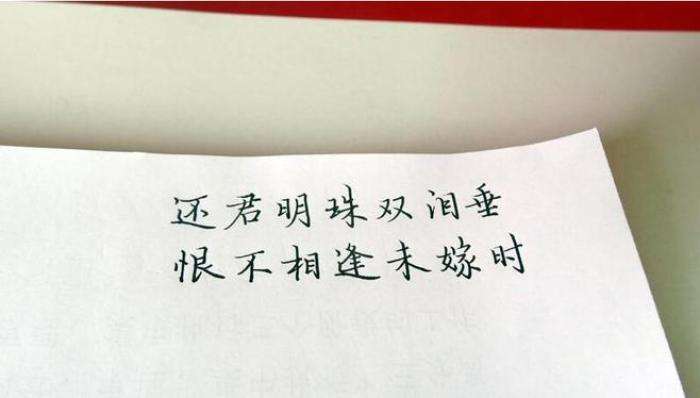 还君明珠双泪垂
恨不相逢未嫁时